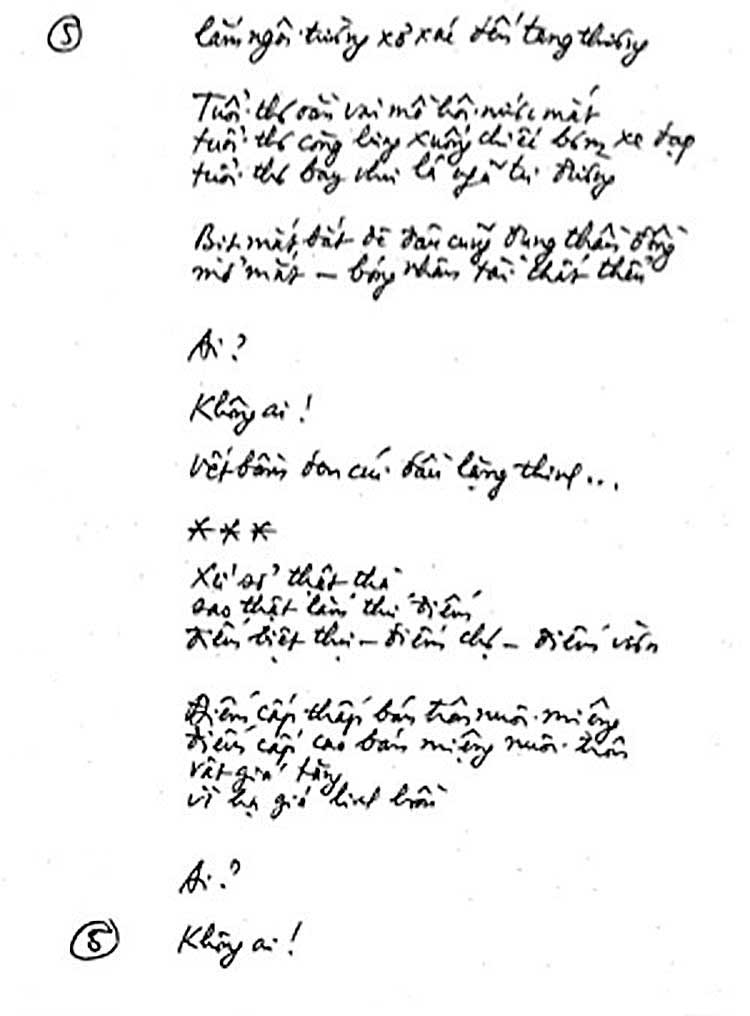 ⑤ lắm ngôi trường xơ xác đến tang thương
Tuổi thơ oằn vai mồ hôi nước mắt
tuổi thơ còng lưng xuống chiếc bơm xe đạp
tuổi thơ bay như lá ngã tư đường
Bịt mắt bắt dê đâu cũng đụng thần đồng
mở mắt – bóng nhân tài thất thểu
Ai?
Không ai!
Vết bầm đen cúi đầu lặng thinh...
***
Xứ sở thật thà
sao thật lắm thứ điếm
điếm biệt thự – điếm chợ – điếm vườn
Điếm cấp thấp bán trôn nuôi miệng
điếm cấp cao bán miệng nuôi trôn
vật giá tăng
vì hạ giá linh hồn
Ai?
⑤ Không ai!